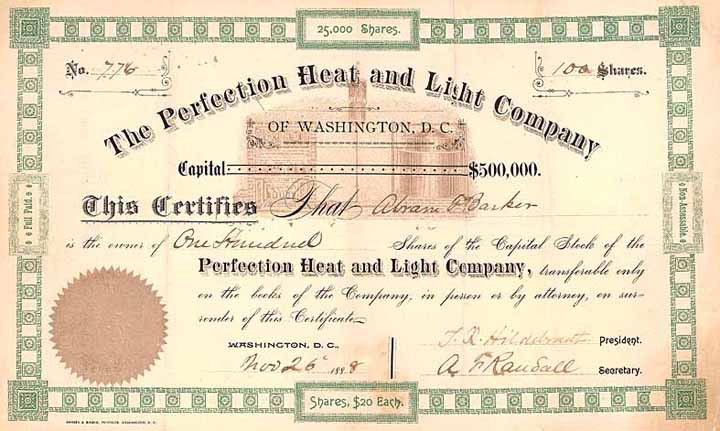 25,000 Shares.
No. 776
100 Shares.
The Perfection Heat and Light Company
OF WASHINGTON, D. C.
Capital $500,000.
This Certifies That Abram Barker
is the owner of One Hundred Shares of the Capital Stock of the
Perfection Heat and Light Company, transferable only
on the books of the Company, in person or by attorney, on sur-
render of this Certificate
WASHINGTON, D. C.,
Nov 26 1888
Hildebrant President.
A F Randall Secretary.
Full Paid.
Non-Assessable.
Shares, $20 Each.